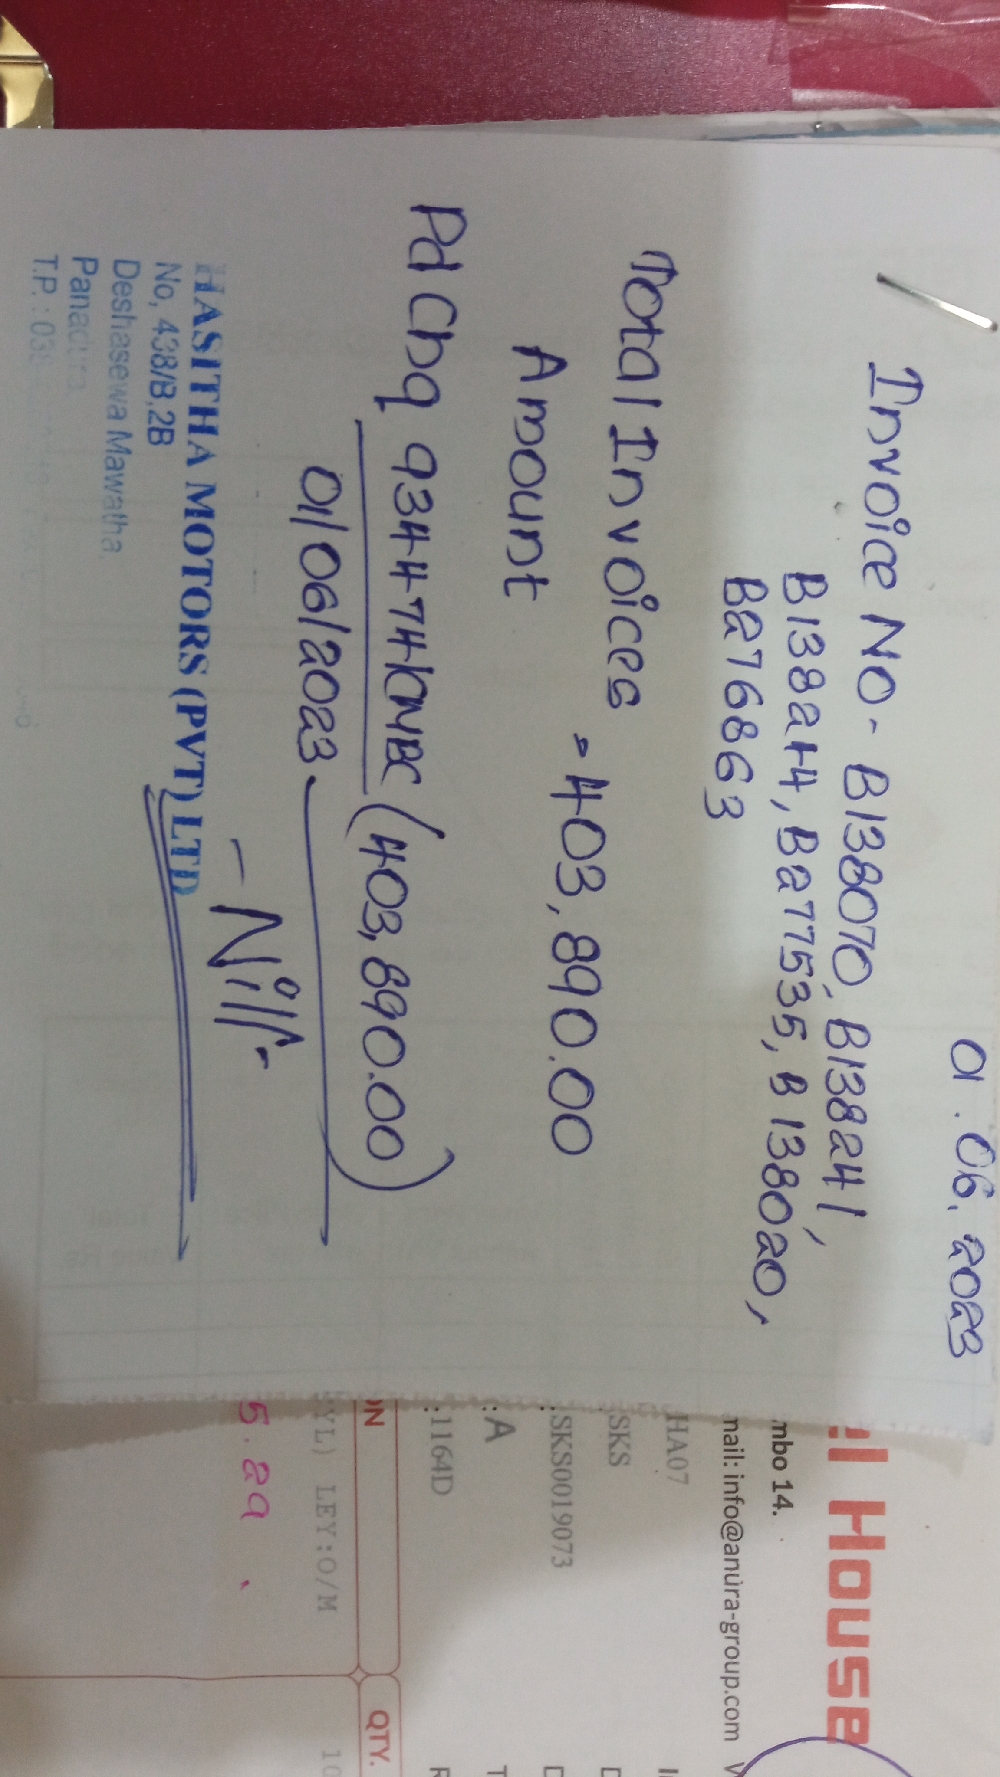 01.06.2023
Invoice NO- B138070, B138241,
B138244, B277535, B138020,
B276863
Total Invoices
Amount = 403,890.00
Pd Chq 934474
(403,890.00)
01/06/2023
- Nill -
HASITHA MOTORS (PVT) LTD
No, 438/B,2B
Deshasewa Mawatha,
Panadura
T.P. : 03
House
mbo 14.
mail: info@anura-group.com
HA07
SKS
:SKS0019073
: A
:1164D
ON
QTY.
YL) LEY:O/M
10
5.29